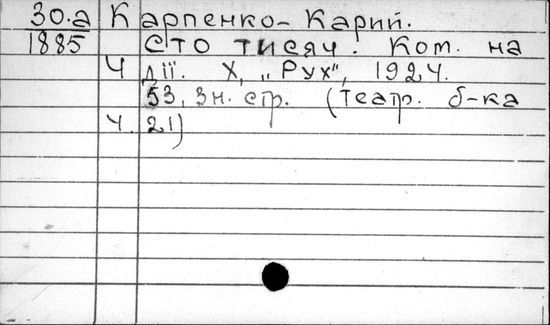 30.а Карпенко-Карий.
1885 Сто тисяч. Ком. на
4 дії. Х, „Рух", 1924.
53, зн. стр. (Театр. б-ка
ч. 21)